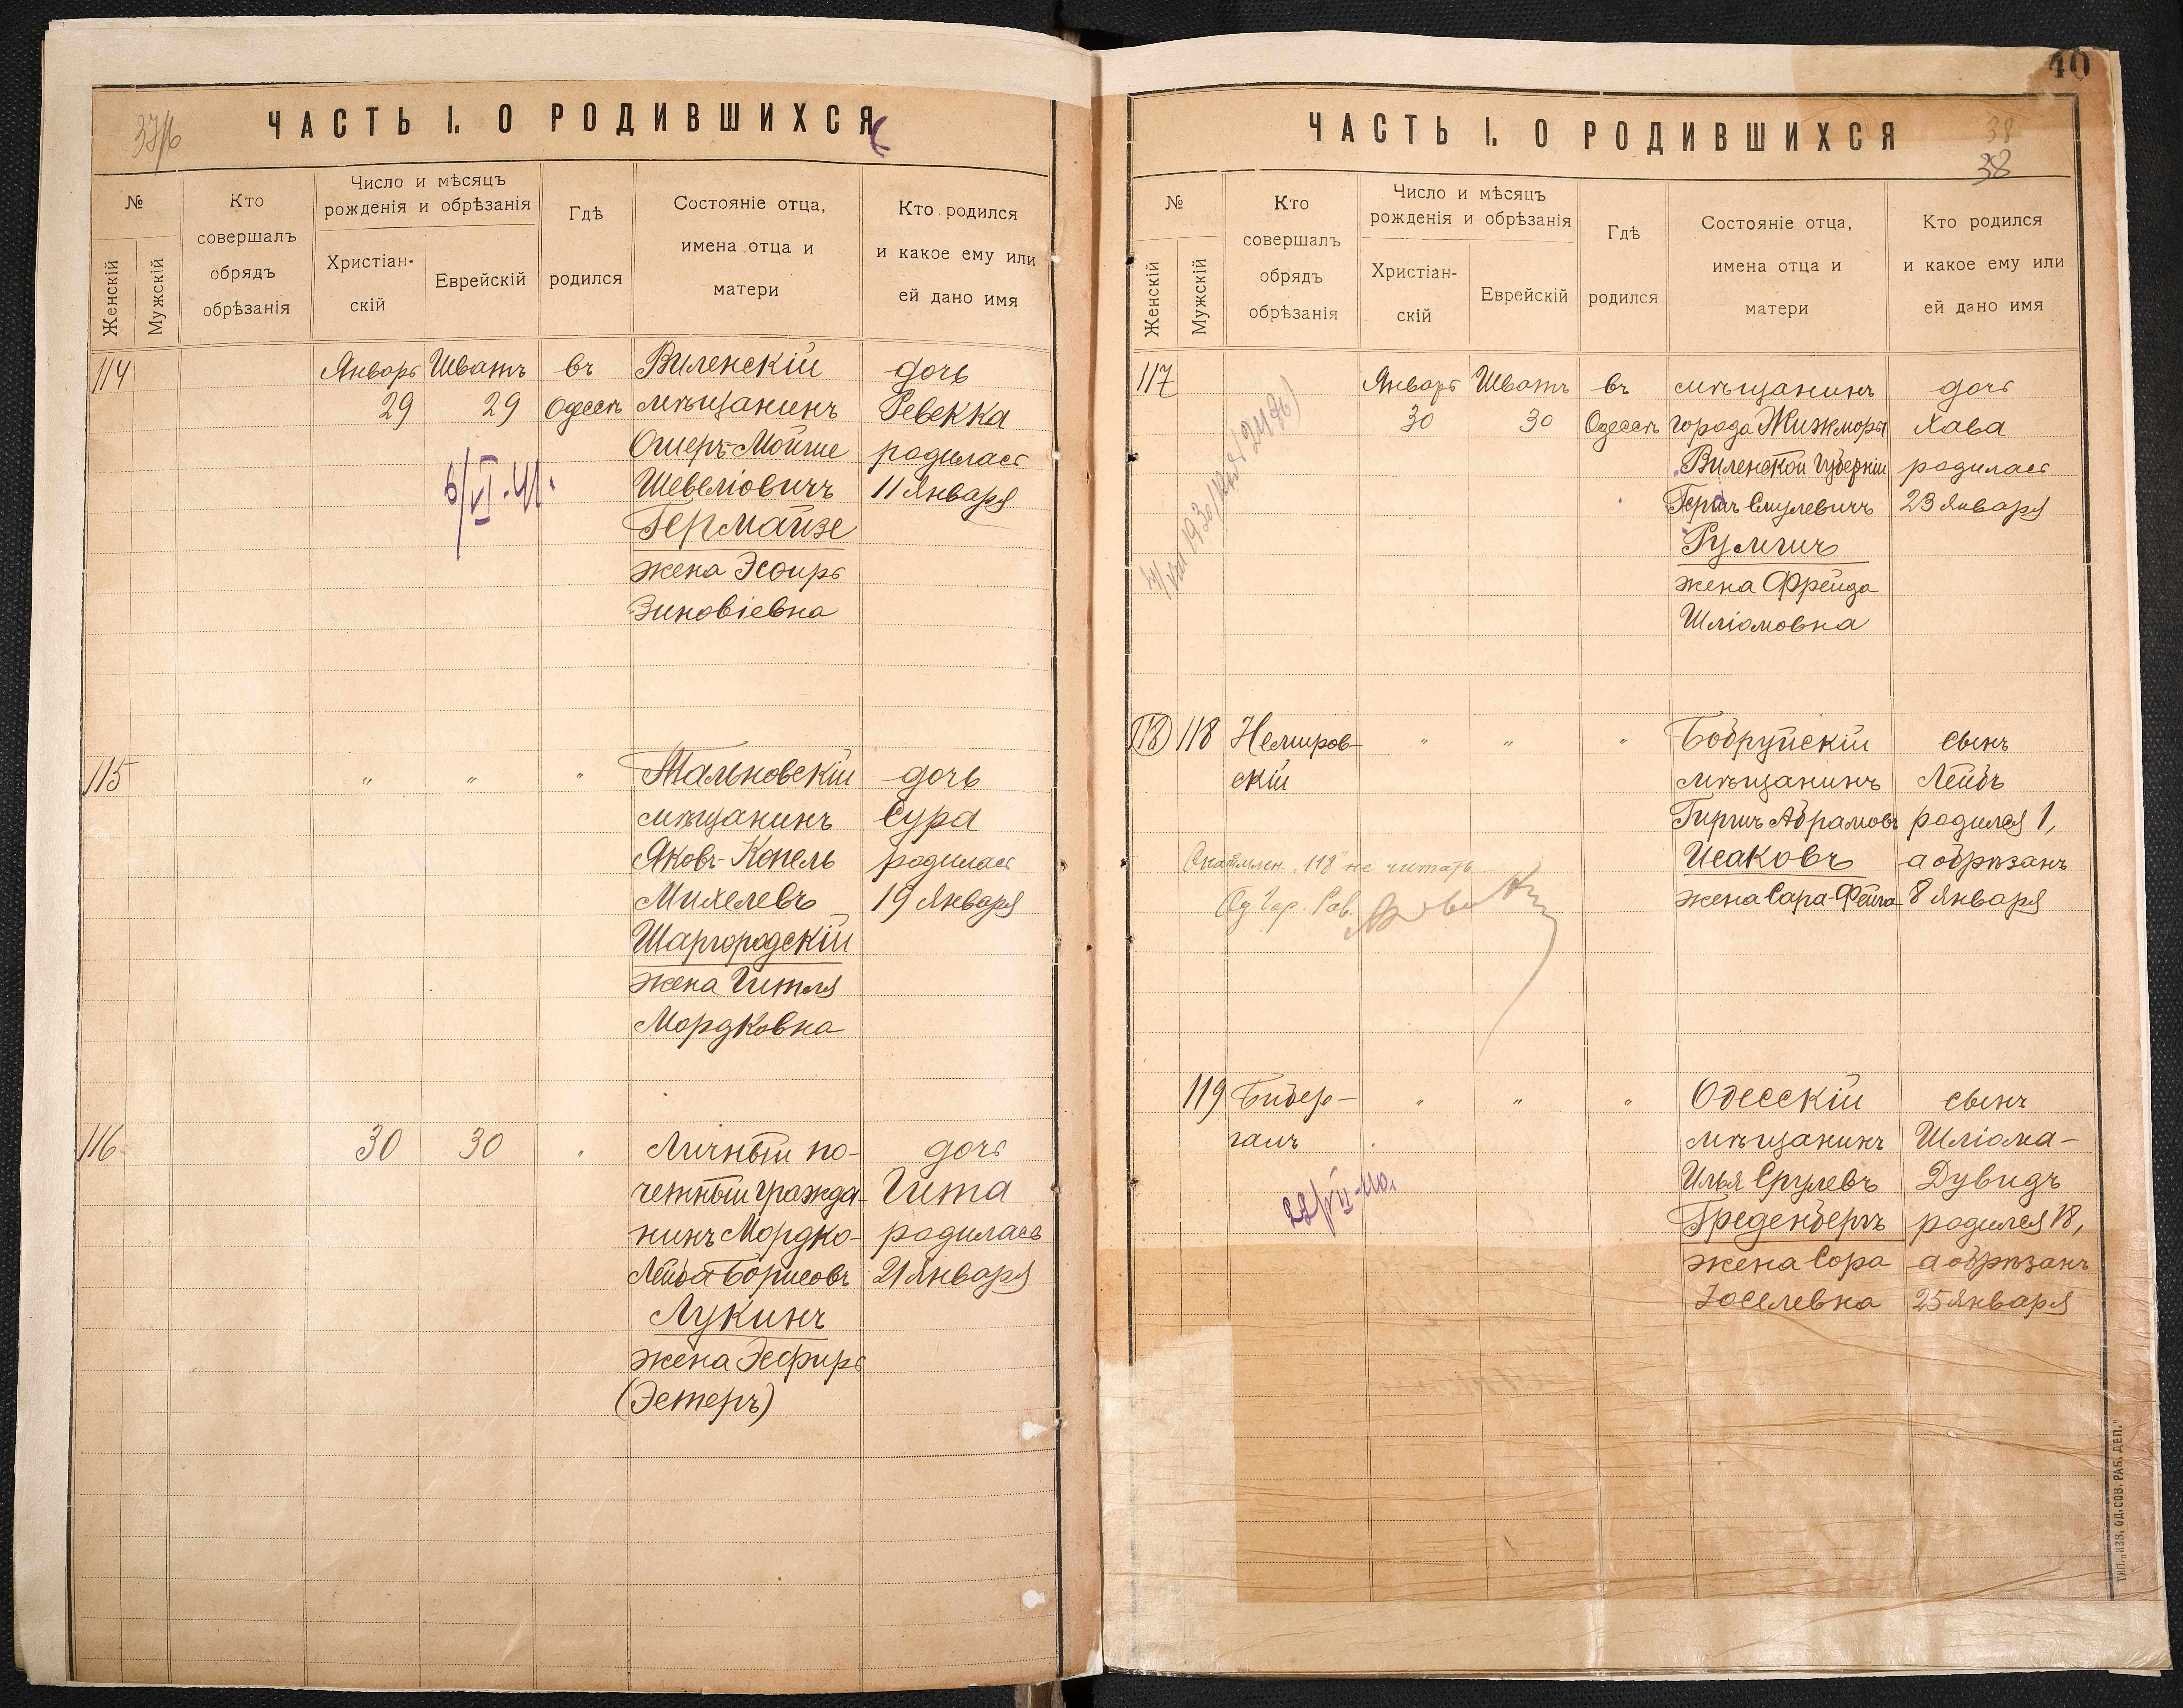 ЧАСТЬ I. О РОДИВШИХСЯ
№
Женскій
Мужскій
Кто
совершалъ
обрядъ
обрѣзанія
Число и мѣсяцъ
рожденія и обрѣзанія
Христіан-
скій
Еврейскій
Гдѣ
родился
Состояніе отца,
имена отца и
матери
Кто родился
и какое ему или
ей дано имя
114
Январь
29
Шватъ
29
въ
Одессѣ
Виленскій
мѣщанинъ
Ошеръ-Мойше
Шевеліовичъ
Гермайзе
жена Эсѳирь
Зиновіевна
дочь
Ревекка
родилась
11 Января
6/VI-41.
115
"
"
"
Тальновскій
мѣщанинъ
Яковъ-Копель
Михелевъ
Шаргородскій
жена Гитля
Мордковна
дочь
Сура
родилась
19 Января
116
30
30
"
Личный по-
четный гражда-
нинъ Мордко-
Лейба Борисовъ
Лукинъ
жена Эсфирь
(Эстеръ)
дочь
Гита
родилась
21 Января
40
ЧАСТЬ I. О РОДИВШИХСЯ
38
38
№
Женскій
Мужскій
Кто
совершалъ
обрядъ
обрѣзанія
Число и мѣсяцъ
рожденія и обрѣзанія
Христіан-
скій
Еврейскій
Гдѣ
родился
Состояніе отца,
имена отца и
матери
Кто родился
и какое ему или
ей дано имя
117
Январь
30
Шватъ
30
въ
Одессѣ
мѣщанинъ
города Жижморы
Виленской Губерніи
Гершъ Смулевичъ
Румшъ
жена Фрейда
Шліомовна
дочь
Хава
родилась
23 Января
118
118
Немиров-
скій
"
"
"
Бобруйскій
мѣщанинъ
Гиршъ Абрамовъ
Исаковъ
жена Сара-Фейга
сынъ
Лейбъ
родился 1,
а обрѣзанъ
8 Января
"118" не читать
Од. Гор. Рав.
119
Бибер-
галъ
"
"
"
Одесскій
мѣщанинъ
Илья Срулевъ
Греденбергъ
жена Сора
Іоселевна
сынъ
Шліома-
Дувидъ
родился 18,
а обрѣзанъ
25 Января
ТИП. „ИЗВ. ОД. СОВ. РАБ. ДЕП."